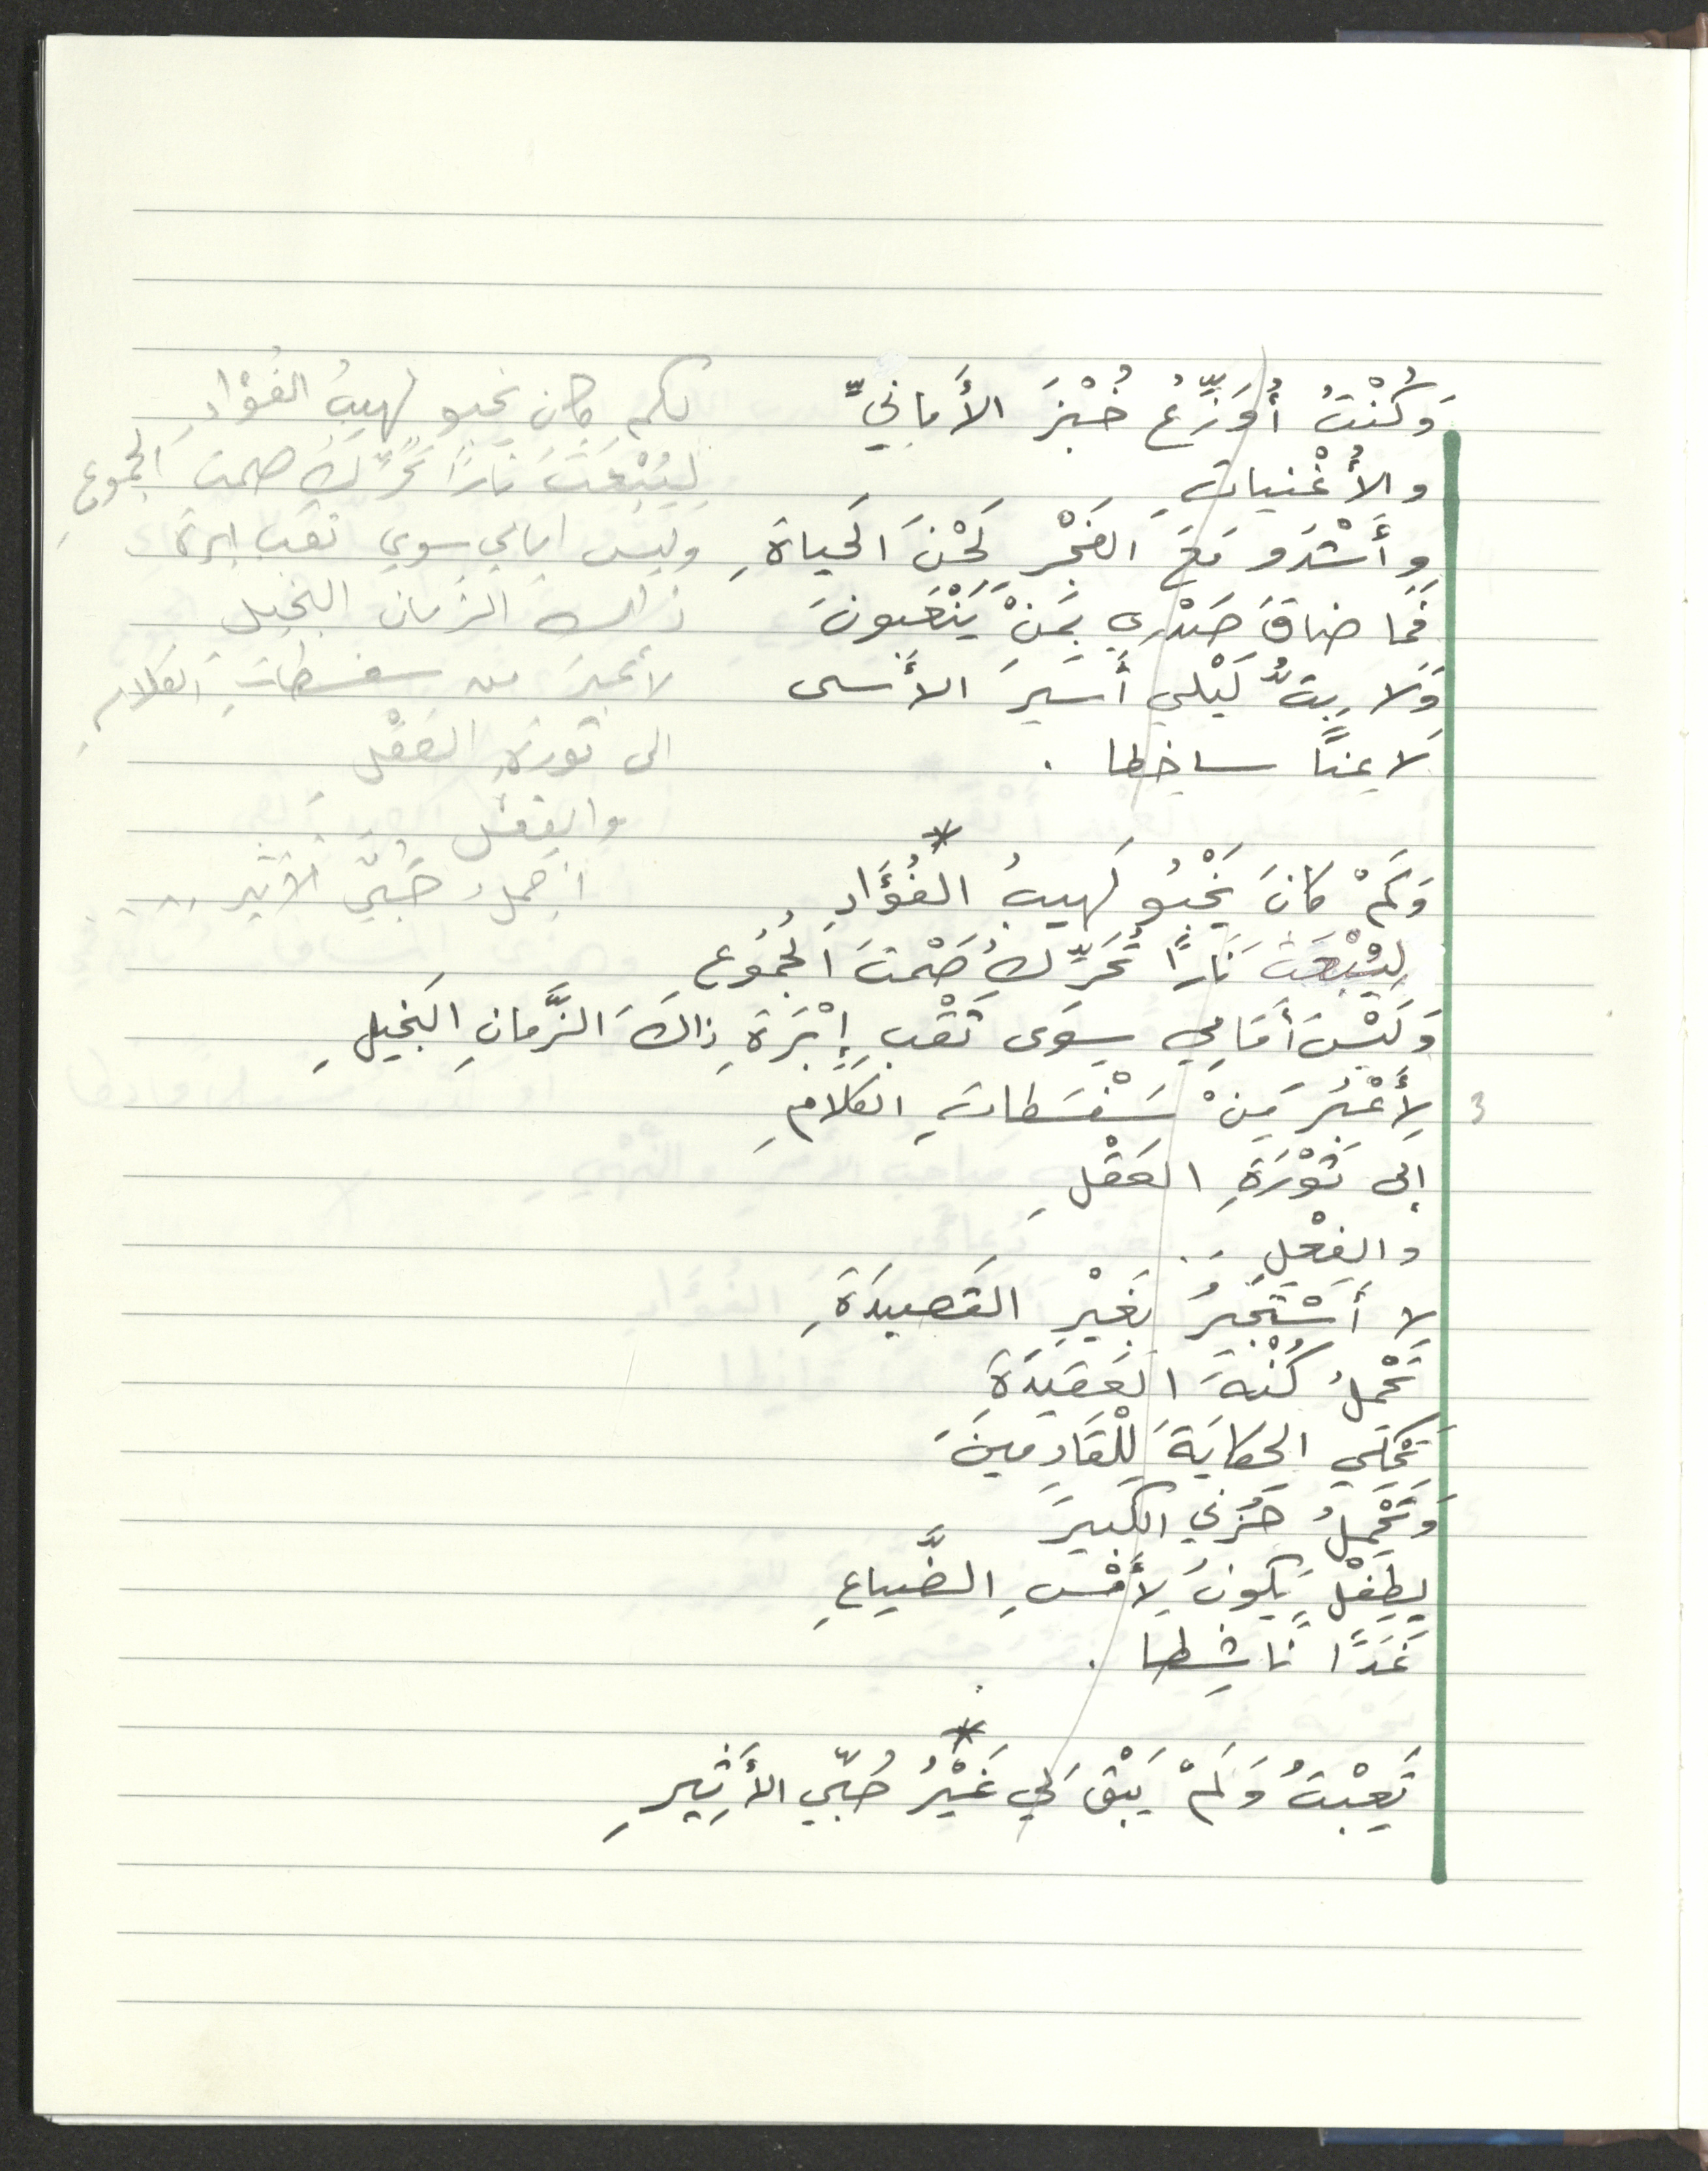 وَكُنْتُ أُوَزِّعُ خُبْزَ الأَمانِيِّ
والأُغْنِياتِ
وأَشْدو مَعَ الفَجْرِ لَحْنَ الحَياةِ
فَما ضاقَ صَدْري بِمَنْ يَنْعَبونَ
وَلا بِتُّ لَيْلي أَسيرَ الأَسى
لاعِنًا ساخِطا .
*
وَكَمْ كانَ يَخْبُو لَهيبُ الفُؤَادِ
لِيُبْعَثَ نَارًا تُحَرِّكُ صَمْتَ الجُمُوعِ
وَلَيْسَ أَمَامِي سِوَى ثَقْبِ إِبْرَةِ ذاكَ الزَّمانِ البَخيلِ
3 لِأَعْبُرَ مِنْ سَفْسَطاتِ الكَلامِ
إلى ثَوْرَةِ العَقْلِ
والفِعْلِ ..
لا أَسْتَجيرُ بِغَيْرِ القَصيدَةِ
تَحْمِلُ كُنْهَ العَقيدَةِ
تَحْكي الحِكايَةَ لِلْقَادِمينَ
وَتَحْمِلُ حُزْني الكَبيرَ
لِطِفْلٍ يَكونُ لِأَمْسِ الضَّياعِ
غَدًا ناشِطا .
*
تَعِبْتُ وَلَمْ يَبْقَ لي غَيْرُ حُبّي الأَثِيرِ
لكم كان يخبو لهيبُ الفُؤْادِ
لِيُبْعَثَ نارًا تُحَرِّكُ صمت الجموعِ
وليس امامي سوى ثقب ابرة
ذاك الزمان البخيل
لأعبرَ من سفسطاتِ الكلامِ
الى ثورةِ العَقْل
والفعل
أحملُ حُبّي الأثير ...